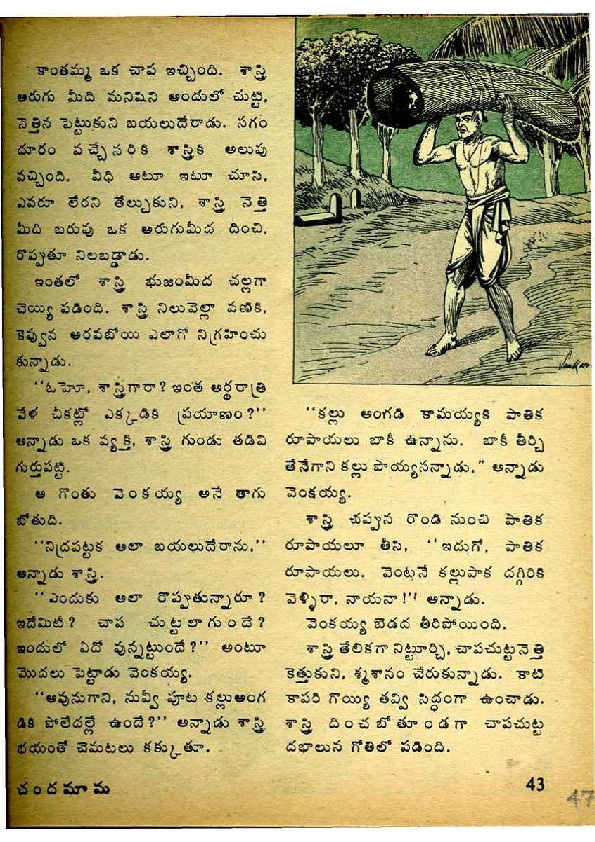 కాంతమ్మ ఒక చాప ఇచ్చింది. శాస్త్రి
అరుగు మీది మనిషిని అందులో చుట్టి,
నెత్తిన పెట్టుకుని బయలుదేరాడు. సగం
దూరం వచ్చేసరికి శాస్త్రికి అలుపు
వచ్చింది. వీధి అటూ ఇటూ చూసి,
ఎవరూ లేరని తేల్చుకుని, శాస్త్రి నెత్తి
మీది బరువు ఒక అరుగుమీద దించి,
రొప్పుతూ నిలబడ్డాడు.
ఇంతలో శాస్త్రి భుజంమీద చల్లగా
చెయ్యి పడింది. శాస్త్రి నిలువెల్లా వణికి,
కెవ్వున అరవబోయి ఎలాగో నిగ్రహించు
కున్నాడు.
"ఓహో, శాస్త్రిగారా? ఇంత అర్ధరాత్రి
వేళ చీకట్లో ఎక్కడికి ప్రయాణం?"
అన్నాడు ఒక వ్యక్తి, శాస్త్రి గుండు తడివి
గుర్తుపట్టి.
ఆ గొంతు వెంకయ్య అనే తాగు
బోతుది.
"నిద్రపట్టక అలా బయలుదేరాను,"
అన్నాడు శాస్త్రి.
"ఎందుకు అలా రొప్పుతున్నారూ?
ఇదేమిటీ? చాప చుట్టలాగుందే?
ఇందులో ఏదో వున్నట్టుందే?" అంటూ
మొదలు పెట్టాడు వెంకయ్య.
"అవునుగాని, నువ్వీ పూట కల్లుఅంగ
డికి పోలేదల్లే ఉందే?" అన్నాడు శాస్త్రి
భయంతో చెమటలు కక్కుతూ.
"కల్లు అంగడి కామయ్యకి పాతిక
రూపాయలు బాకీ ఉన్నాను. బాకీ తీర్చి
తేనేగాని కల్లు పొయ్యనన్నాడు," అన్నాడు
వెంకయ్య.
శాస్త్రి చప్పున రొండి నుంచి పాతిక
రూపాయలూ తీసి, "ఇదుగో, పాతిక
రూపాయలు. వెంటనే కల్లుపాక దగ్గిరికి
వెళ్ళిరా, నాయనా!" అన్నాడు.
వెంకయ్య బెడద తీరిపోయింది.
శాస్త్రి తేలికగా నిట్టూర్చి, చాపచుట్టనెత్తి
కెత్తుకుని, శ్మశానం చేరుకున్నాడు. కాటి
కాపరి గొయ్యి తవ్వి సిద్ధంగా ఉంచాడు.
శాస్త్రి దించబోతూండగా చాపచుట్ట
దభాలున గోతిలో పడింది.
చందమామ
43
47